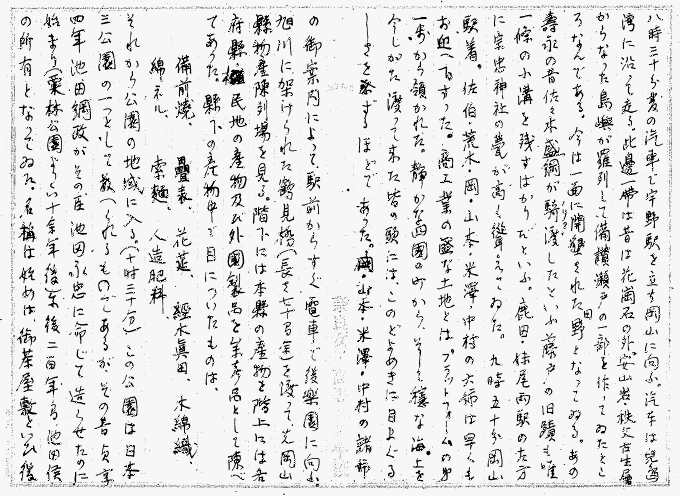 八時三十分発の汽車で宇野駅を立ち岡山に向ふ。汽车は児島
湾に沿って走る。此邊一帯は昔は花崗石の外、安山岩・秩父古生層
からなった島嶼が羅列して備讃瀬戸の一部を作ってゐたとこ
ろなんである。今は一面に開墾された田野となってゐる。あの
壽永の昔佐々木盛綱が騎渡したといふ藤戸の旧蹟も唯
一條の小溝を残すばかりだといふ。鹿田・妹尾両駅の左方
に宗忠神社の甍が高く聳えてゐた。九時五十分岡山
駅着。佐伯・荒木・岡・山本・米澤・中村の六姉は早くも
お迎へ下すった。商工業の盛な土地とはプラットフォームの第
一歩から頷かれた。静かな西國の町から、そして穏な海上を
今しがた渡って来た皆の頭には、このどよめきに目まぐる
しさを感ずるほどであった。岡・山本・米澤・中村の諸姉
の御案内によって、駅前からすぐ電車で後樂園に向ふ。
旭川に架けられた鶴見橋(長さ七十五間)を渡って先岡山
縣物産陳列場を見る。階下には本縣の産物を階上には各
府縣・植民地の産物及び外國製品を参考品として陳べ
てあった。縣下の産物中で目についたものは、
備前焼、疊表、花莚、經木眞田、木綿織、
綿ネル、索麺、人造肥料
それから公園の地域に入る。(十時三十分)この公園は日本
三公園の一つとして教へられるものであるが、その昔貞享
四年池田綱政がその臣池田永忠に命じて造らせたのに
始まり(栗林公園より六十余年後)東後二百年間池田侯
の所有となってゐた。名稱は始めは御茶屋敷といひ後